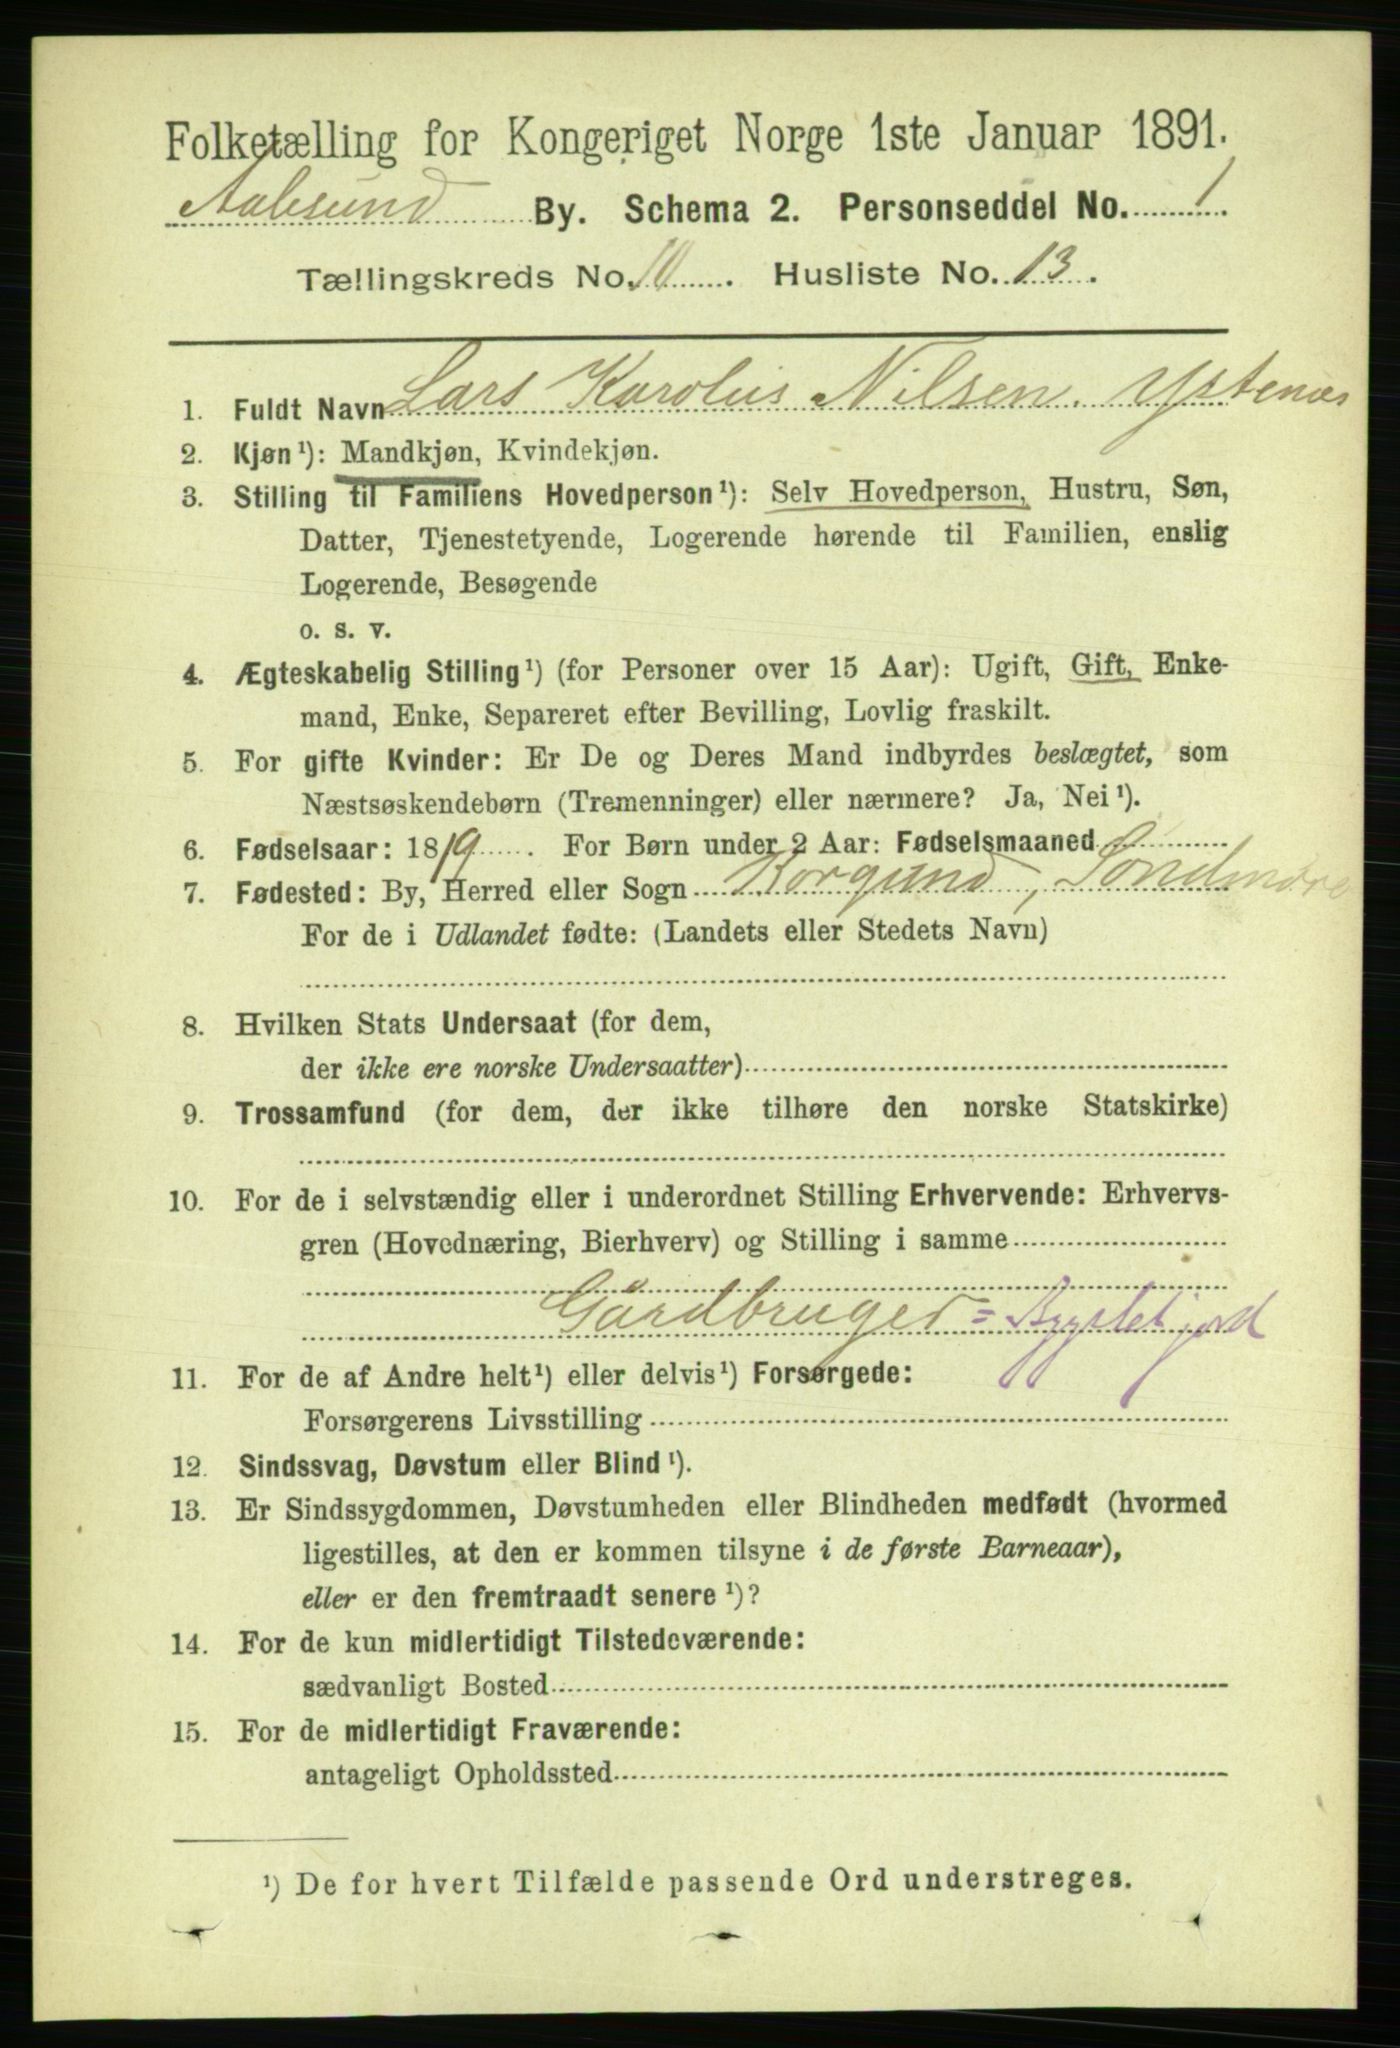 Folketælling for Kongeriget Norge 1ste Januar 1891.
Aalesund By. Schema 2. Personseddel No. 1.
Tællingskreds No. 10. Husliste No. 13.
1. Fuldt Navn Lars Karolus Nilsen. Ystenæs
2. Kjøn¹): Mandkjøn, Kvindekjøn.
3. Stilling til Familiens Hovedperson¹): Selv Hovedperson, Hustru, Søn,
Datter, Tjenestetyende, Logerende hørende til Familien, enslig
Logerende, Besøgende
o. s. v.
4. Ægteskabelig Stilling¹) (for Personer over 15 Aar): Ugift, Gift, Enke-
mand, Enke, Separeret efter Bevilling, Lovlig fraskilt.
5. For gifte Kvinder: Er De og Deres Mand indbyrdes beslægtet, som
Næstsøskendebørn (Tremenninger) eller nærmere? Ja, Nei¹).
6. Fødselsaar: 1819. For Børn under 2 Aar: Fødselsmaaned
7. Fødested: By, Herred eller Sogn Borgund, Söndmöre
For de i Udlandet fødte: (Landets eller Stedets Navn)
8. Hvilken Stats Undersaat (for dem,
der ikke ere norske Undersaatter)
9. Trossamfund (for dem, der ikke tilhøre den norske Statskirke)
10. For de i selvstændig eller i underordnet Stilling Erhvervende: Erhvervs-
gren (Hovednæring, Bierhverv) og Stilling i samme
Gårdbruger = Bygslet jord
11. For de af Andre helt¹) eller delvis¹) Forsørgede:
Forsørgerens Livsstilling
12. Sindssvag, Døvstum eller Blind¹).
13. Er Sindssygdommen, Døvstumheden eller Blindheden medfødt (hvormed
ligestilles, at den er kommen tilsyne i de første Barneaar),
eller er den fremtraadt senere¹)?
14. For de kun midlertidigt Tilstedeværende:
sædvanligt Bosted
15. For de midlertidigt Fraværende:
antageligt Opholdssted
¹) De for hvert Tilfælde passende Ord understreges.